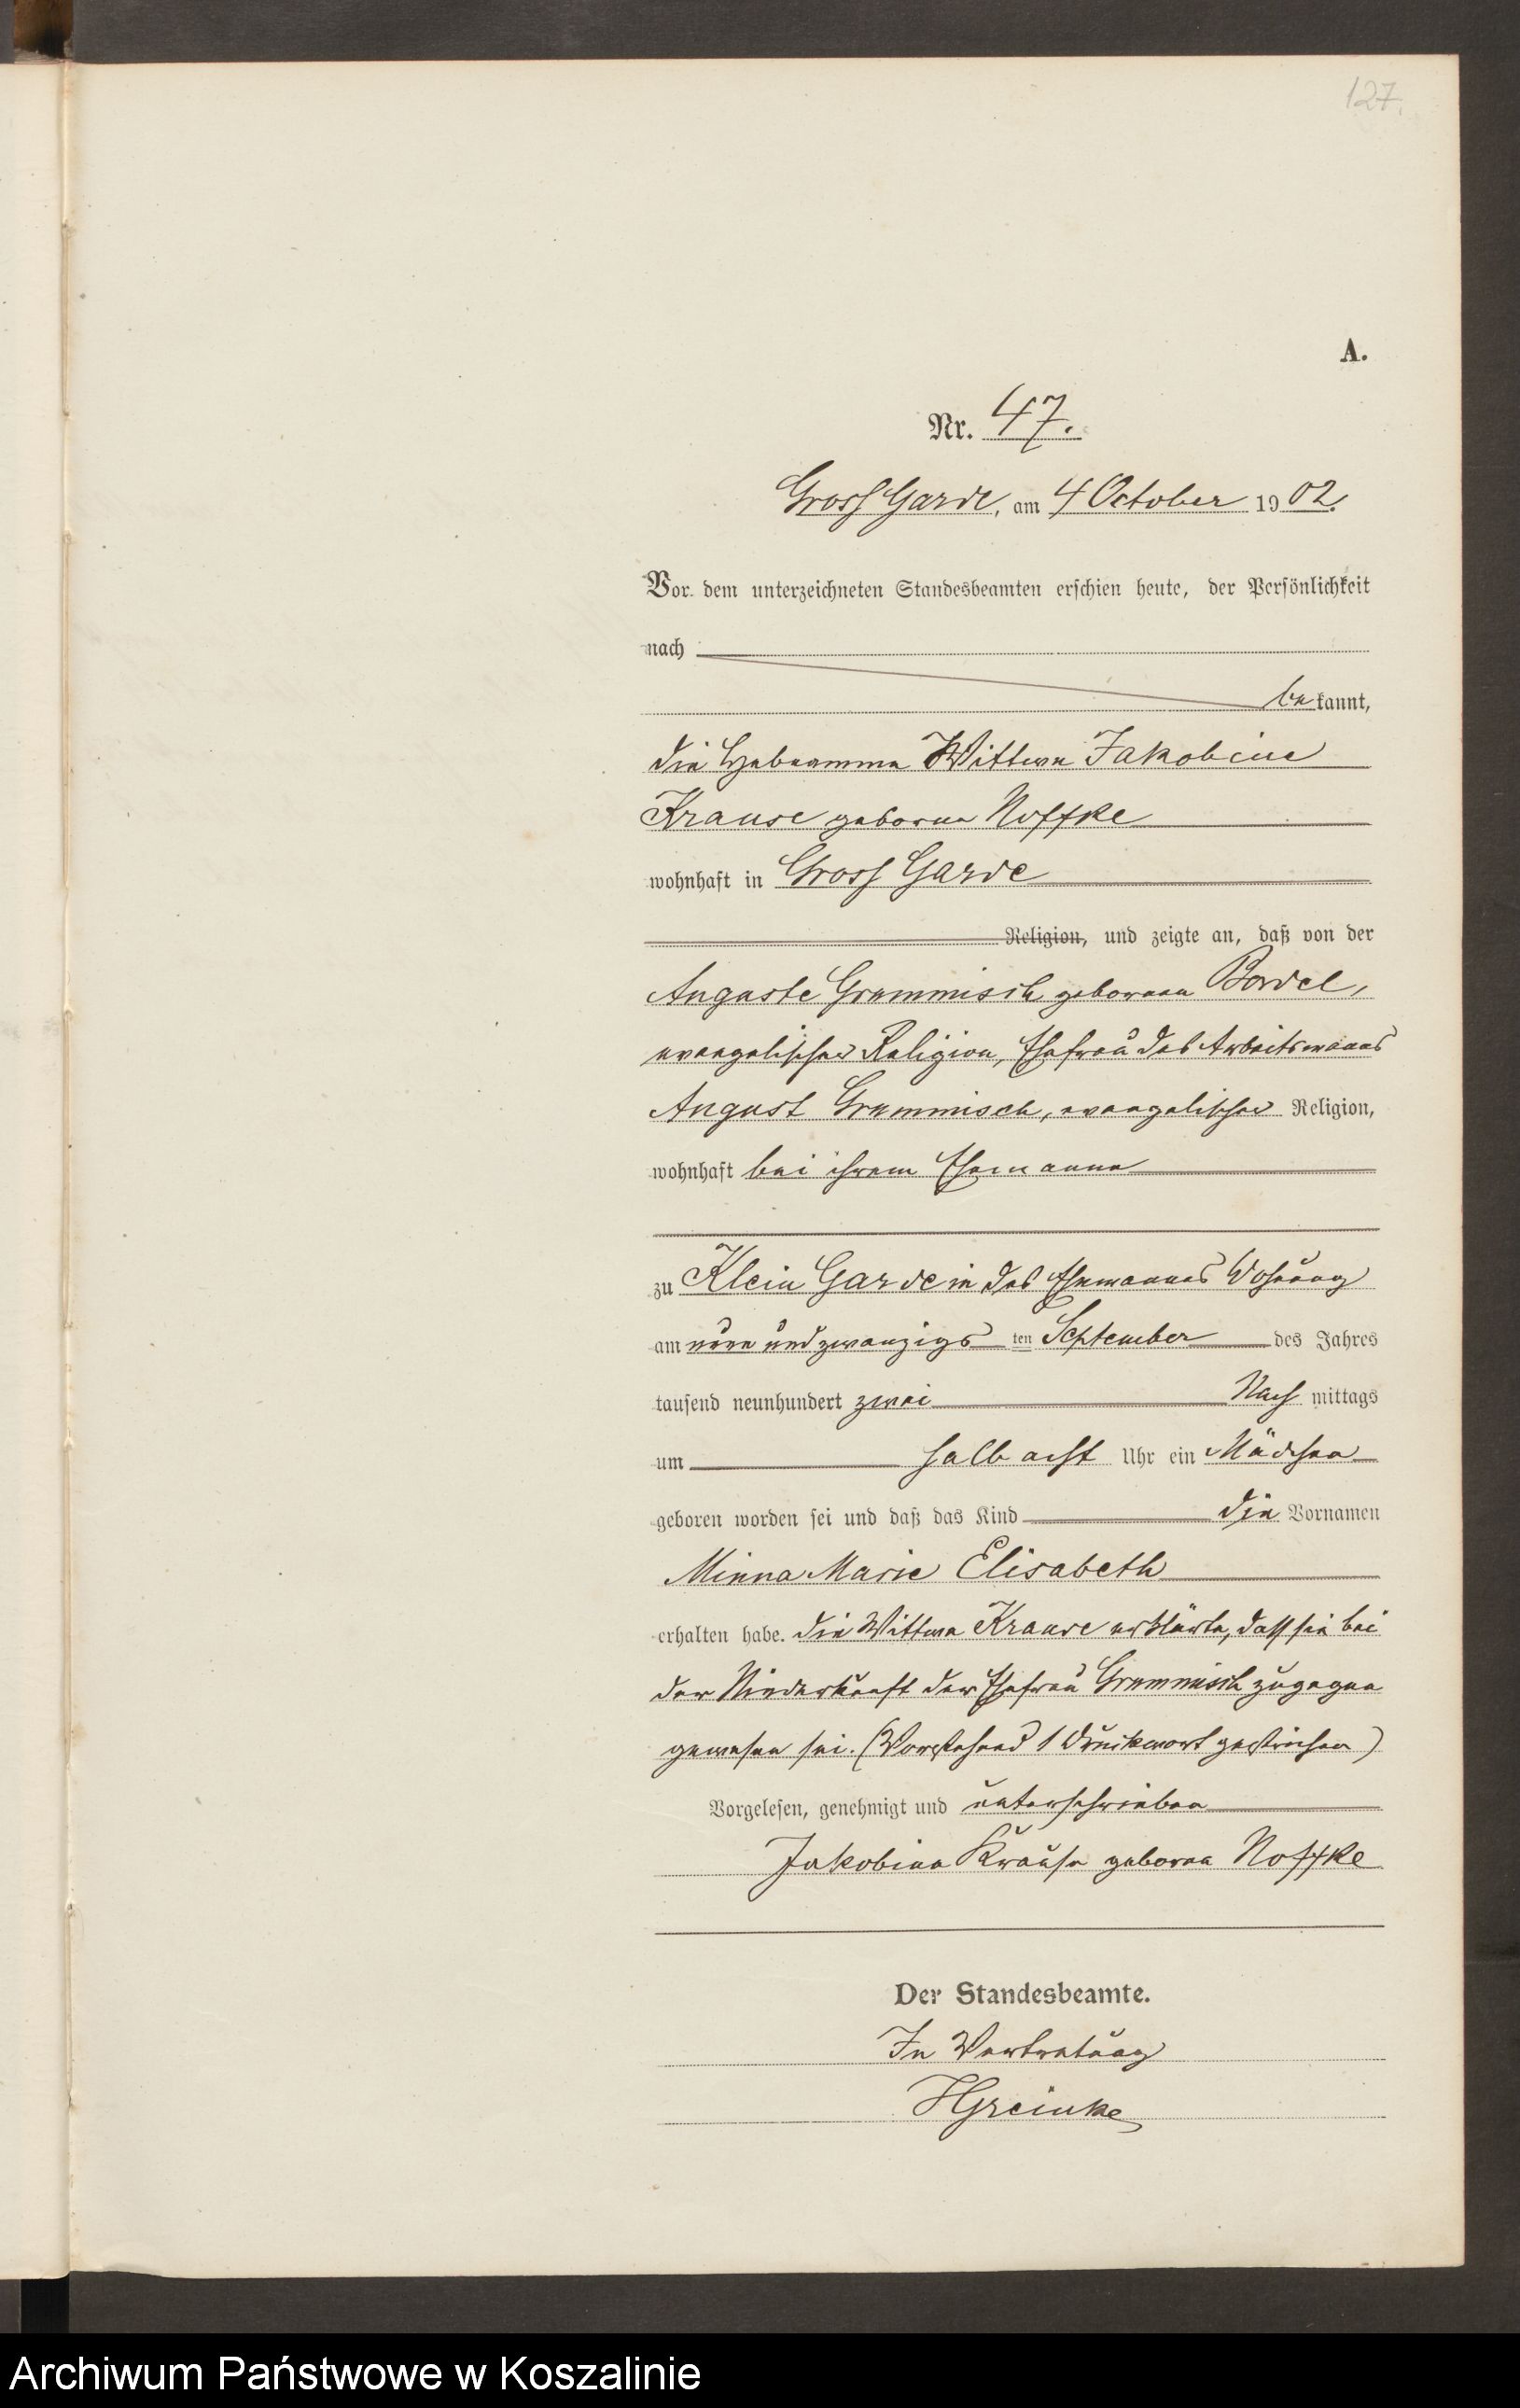 127.
A.
Nr. 47.
Gross Garde, am 4 October 1902.
Vor dem unterzeichneten Standesbeamten erschien heute, der Persönlichkeit
nach
bekannt,
die Hebeamme Wittwe Jakobine
Krause geborne Noffke
wohnhaft in Gross Garde
Religion, und zeigte an, daß von der
Auguste Grummisch gebornen Bordel,
evangelischer Religion, Ehefrau des Arbeitsmanns
August Grummisch, evangelischer Religion,
wohnhaft bei ihrem Ehemanne
zu Klein Garde in des Ehemannes Wohnung
am neun und zwanzigsten September des Jahres
tausend neunhundert zwei Nachmittags
um halb acht Uhr ein Mädchen
geboren worden sei und daß das Kind die Vornamen
Minna Marie Elisabeth
erhalten habe. Die Wittwe Krause erklärte, dass sie bei
der Niederkunft der Ehefrau Grummisch zugegen
gewesen sei. (Vorstehend 1 Druckwort gestrichen)
Vorgelesen, genehmigt und unterschrieben
Jakobine Krause geborne Noffke
Der Standesbeamte.
In Vertretung
HGreinke
Archiwum Państwowe w Koszalinie